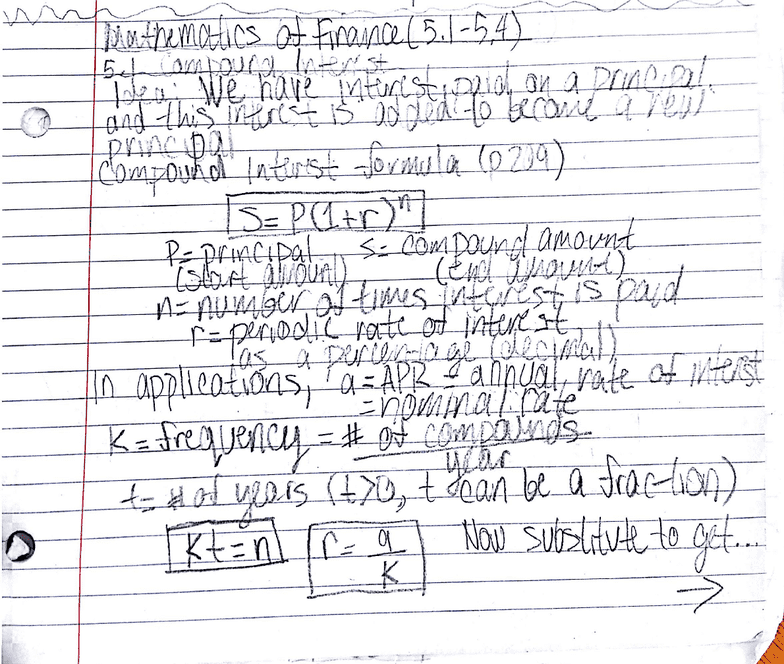 Mathematics of Finance (5.1-5.4)
5.1 Compound Interest
Idea: We have interest paid on a principal
and this interest is added to become a new
principal
Compound Interest formula (p209)
S=P(1+r)^n
P=principal S=compound amount
(start amount) (end amount)
n=number of times interest is paid
r=periodic rate of interest
as a percentage (decimal)
In applications, a=APR=annual rate of interest
=nominal rate
K=frequency=# of compounds
year
t=# of years (t>0, t can be a fraction)
Kt=n r=a/K Now substitute to get...
→